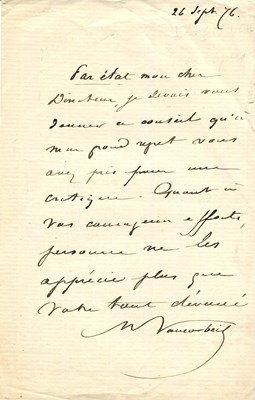 26 Sept. 76.
Par état mon cher
Directeur, je devais vous
donner ce conseil qu'à
mon grand regret vous
avez pris pour une
critique. Quant à
vos courageux efforts,
personne ne les
apprécie plus que
votre tout dévoué
Vaucorbeil